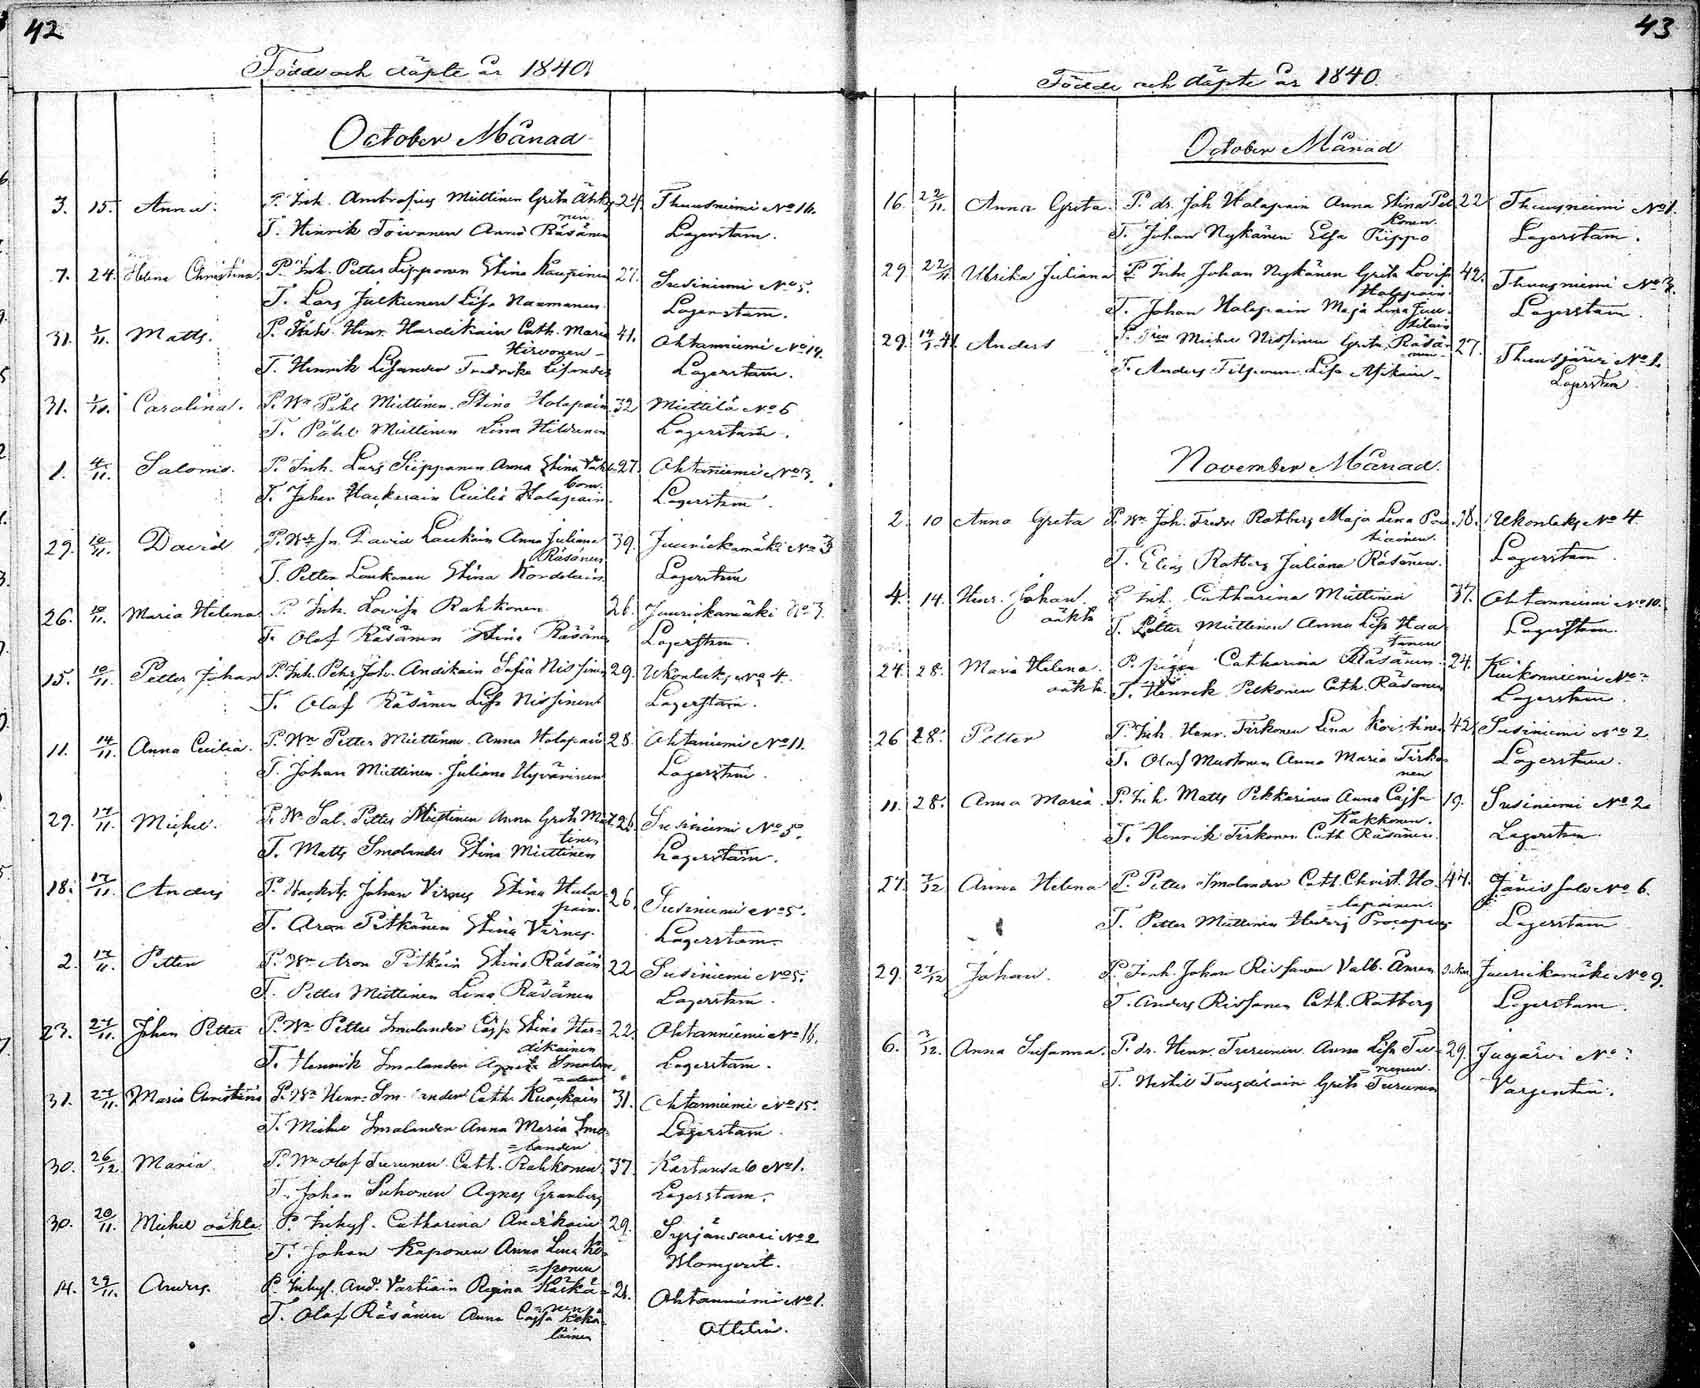 42
Födde och döpte år 1840.
October Månad
3. 15. Anna. P. Inh. Ambrosius Miettinen Greta Äihky- 24. Thuusniemi No 16.
nen
T. Hinrik Toivanen Anna Räsänen Lagerstam.
7. 24. Helena Christina. P. Inh. Petter Lipponen Stina Kaupinen 27. Susiniemi No 5.
T. Lars Julkunen Lisa Naumanen. Lagerstam.
31. 1/11. Matts. P. Inh. Hinr. Hardikain Cath. Maria 41. Ohtanniemi No 14.
Hirvonen
T. Hinrik Lisander Fredrika Lisander Lagerstam.
31. 1/11. Carolina. P. Wn Påhl Miettinen. Stina Holopain 32 Miettilä No 6
T. Påhl Miettinen Lina Hildenen Lagerstam.
1. 4/11. Salomo. P. Inh. Lars Sieppanen Anna Stina 27. Ohtaniemi No 3.
T. Johan Hackerain Cecilia Holopain. Lagerstam.
29. 10/11. David P. Wn Jn. David Laukain Anna Juliana 39. Juurickamäki No 3
Räsänen
T. Petter Laukanen Stina Nordslain Lagerstam
26. 10/11. Maria Helena P. Inh. Lovisa Rahkonen 26. Juurickamäki No 3.
T. Olof Räsänen Stina Räsänen Lagerstam.
15. 10/11. Petter Johan P. Inh. Pehr Joh. Andikain Sofia Nissinen 29. Ukonlaks No 4.
T. Olof Räsänen Lisa Nissinen Lagerstam.
11. 14/11. Anna Cecilia. P. Wn Petter Miettinen. Anna Holopain 28. Ohtaniemi No 11.
T. Johan Miettinen. Juliana Hyvärinen Lagerstam.
29. 17/11. Michel. P. Wn Sal. Petter Miettinen Anna Greta Miet 26. Susiniemi No 5.
tinen
T. Matts Smolander Stina Miettinen Lagerstam.
18. 17/11. Anders P. Johan Virnes Stina Holo- 26. Susiniemi No 5.
pain.
T. Aron Pitkänen Stina Virnes. Lagerstam.
2. 17/11. Petter P. Wn Aron Pitkäin Stina Räsäin 22 Susiniemi No 5.
T. Petter Miettinen Lena Räsänen Lagerstam.
23. 27/11. Johan Petter P. Wn Petter Smolander Cajsa Stina Har= 22. Ohtanniemi No 16.
dikainen
T. Hennrik Smolander Agneta Smolan Lagerstam.
=der
31. 27/11. Maria Christina P. Wn Henr. Smolander Cath. Ruockain 31. Ohtanniemi No 15.
T. Michel Smolander Anna Maria Smo- Lagerstam.
=lander
30. 26/12. Maria. P. Wn Olof Turunen Cath. Rahkonen 37. Kartansalo No 1.
T. Johan Suhonen Agnes Granberg Lagerstam.
30. 20/11. Michel oäkta. P. Inhyf. Catharina Andikain 29. Syrjänsaari No 2
T. Johan Kaponen Anna Lena Ko- Homqvist.
=ponen
14. 29/11. Anders. P. Inhyf. And. Vartiain Regina Häikä= 26. Ohtanniemi No 1.
=nen
T. Olof Räsänen Anna Cajsa Koko Athelin.
lainen
43
Födde och döpte år 1840.
October Månad
16. 22/11. Anna Greta. P. dr. Joh Holopain Anna Stina Pel 22 Thuusniemi No 1.
konen
T. Johan Nykänen Elsa Piippo Lagerstam.
29. 22/11 Ulrika Juliana P. Inh. Johan Nykänen Greta Lovisa 42. Thuusniemi No 3.
Holopain
T. Johan Holopain Maja Lena Lagerstam.
29. 14/1 41. Anders P. Michel Nissinen Greta Räsä- 27. Thuusjärvi No 1.
nen
T. Anders Tilponen Lisa Asikain. Lagerstam
November Månad.
2. 10 Anna Greta P. Wn. Joh. Fredr. Rotberg Maja Lena Pou 38. Ukonlaks No 4.
tiainen.
T. Elias Rotberg Juliana Räsänen. Lagerstam.
4. 14. Henr. Johan P. Inh. Catharina Miettinen 37. Ohtanniemi No 10.
oäkta T. Petter Miettinen Anna Lisa Haa Lagerstam.
tanen
24. 28. Maria Helena. P. pigan Catharina Räsänen. 24. Kuikonniemi No ?
oäkta T. Hennrik Pelkonen Cath. Räsänen Lagerstam.
26 28. Petter P. Inh. Henr. Tirkonen Lena Koistinen 42. Susiniemi No 2.
T. Olof Mustonen Anna Maria Tirko Lagerstam.
nen
11. 28. Anna Maria. P. Inh. Matts Pekkarinen Anna Cajsa 19. Susiniemi No 2.
Kakkonen.
T. Henrik Tirkonen Cath Räsänen. Lagerstam.
27. 7/12 Anna Helena P. Petter Smolander Cath. Christ. Ho 44. Jänissalo No 6.
=lopainen.
T. Petter Miettinen Hedvig Procopius Lagerstam
29. 27/12 Johan. P. Inh. Johan Rissanen Valb. Juurickamäki No 9.
T. Anders Rissanen Cath. Rotberg Lagerstam.
6. 3/12. Anna Susanna. P. dr. Henr. Turunen Anna Lisa Tu= 29. Jugärvi No ?
=runen
T. Heskil Tougdilain Greta Turunen Vargentin.